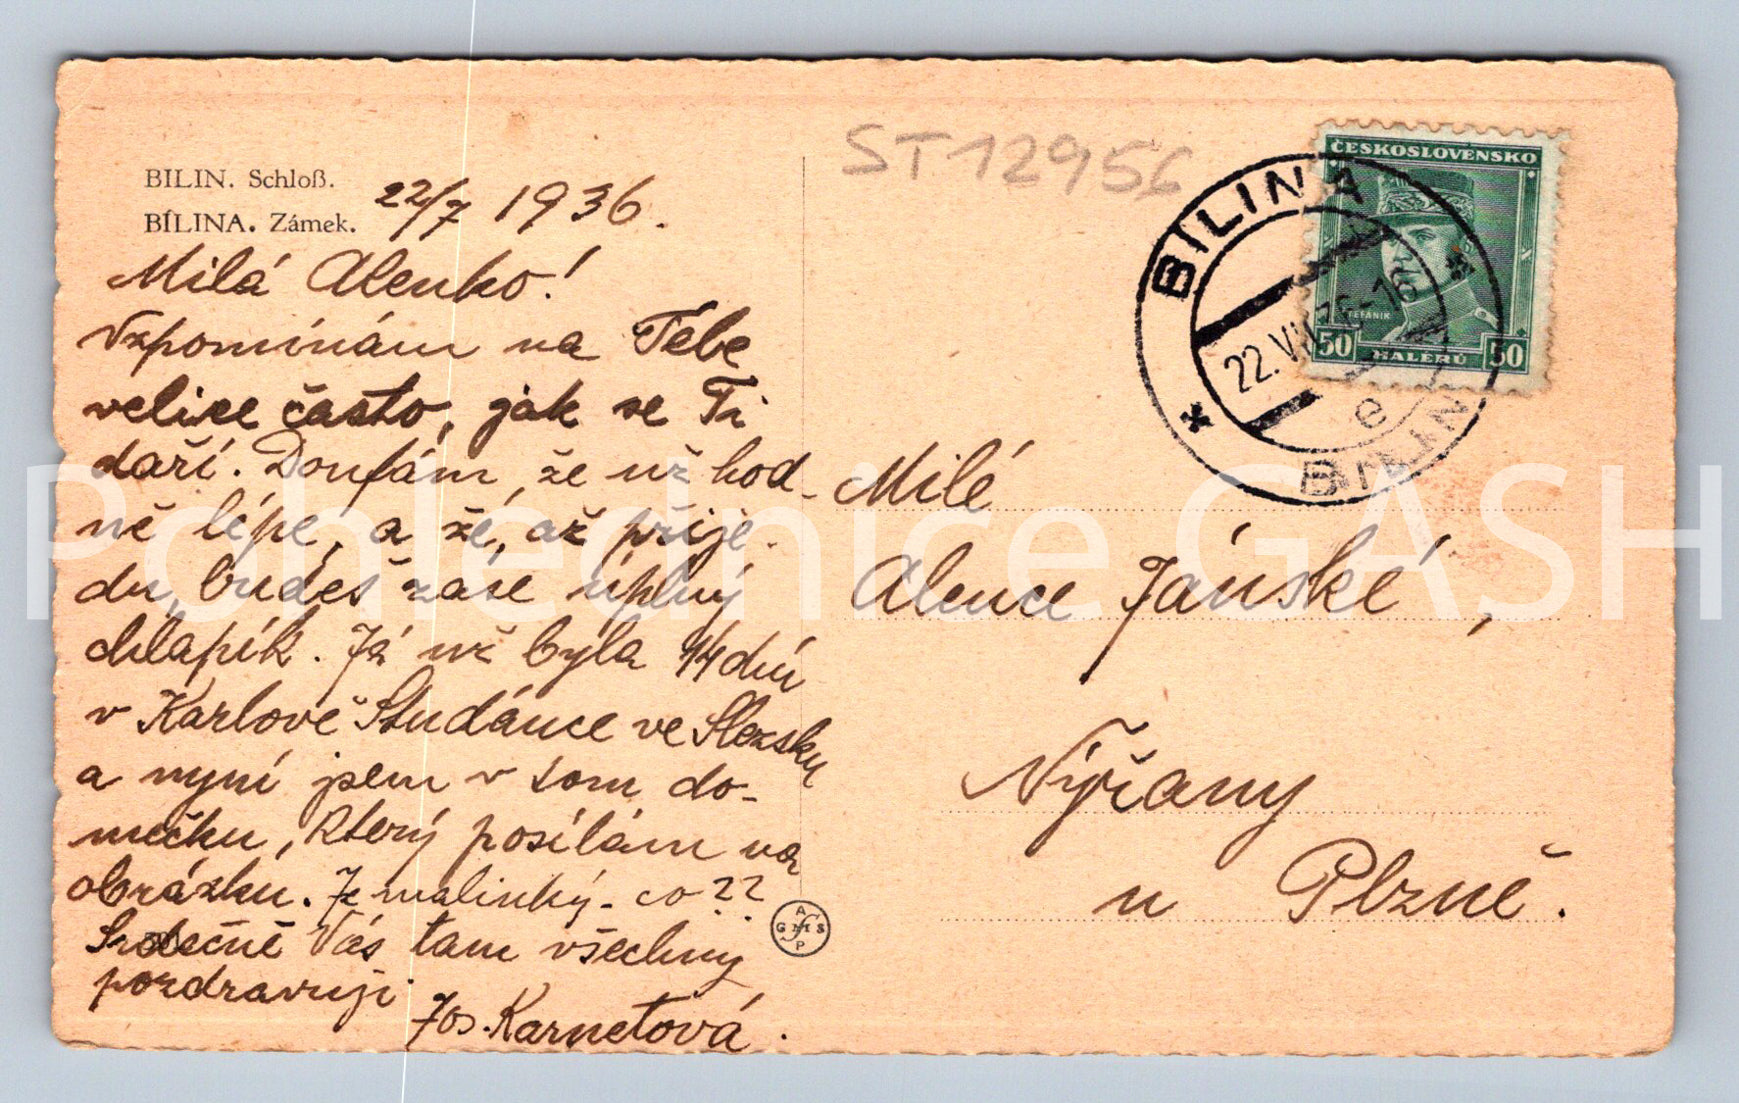 BILIN. Schloß.
BÍLINA. Zámek.
22/7 1936.
Milá Alenko!
Vzpomínám na Tebe
velice často, jak se Ti
daří. Doufám, že už hod-
ně lépe, a že, až přije-
du, budeš zase úplný
chlapík. Já už byla 14 dní
v Karlově Studánce ve Slezsku
a nyní jsem v tom do-
mečku, který posílám na
obrázku. Je malinký - co??
Srdečně Vás tam všechny
pozdravuji
Jos. Karnetová.
ST12956
ČESKOSLOVENSKO
ŠTEFANIK
50 HALÉŘŮ 50
BÍLINA
22. VII. 36-16
e
BILIN
Milé
Alence Jánské,
Nýřany
u Plzně.
Pohlednice GASH